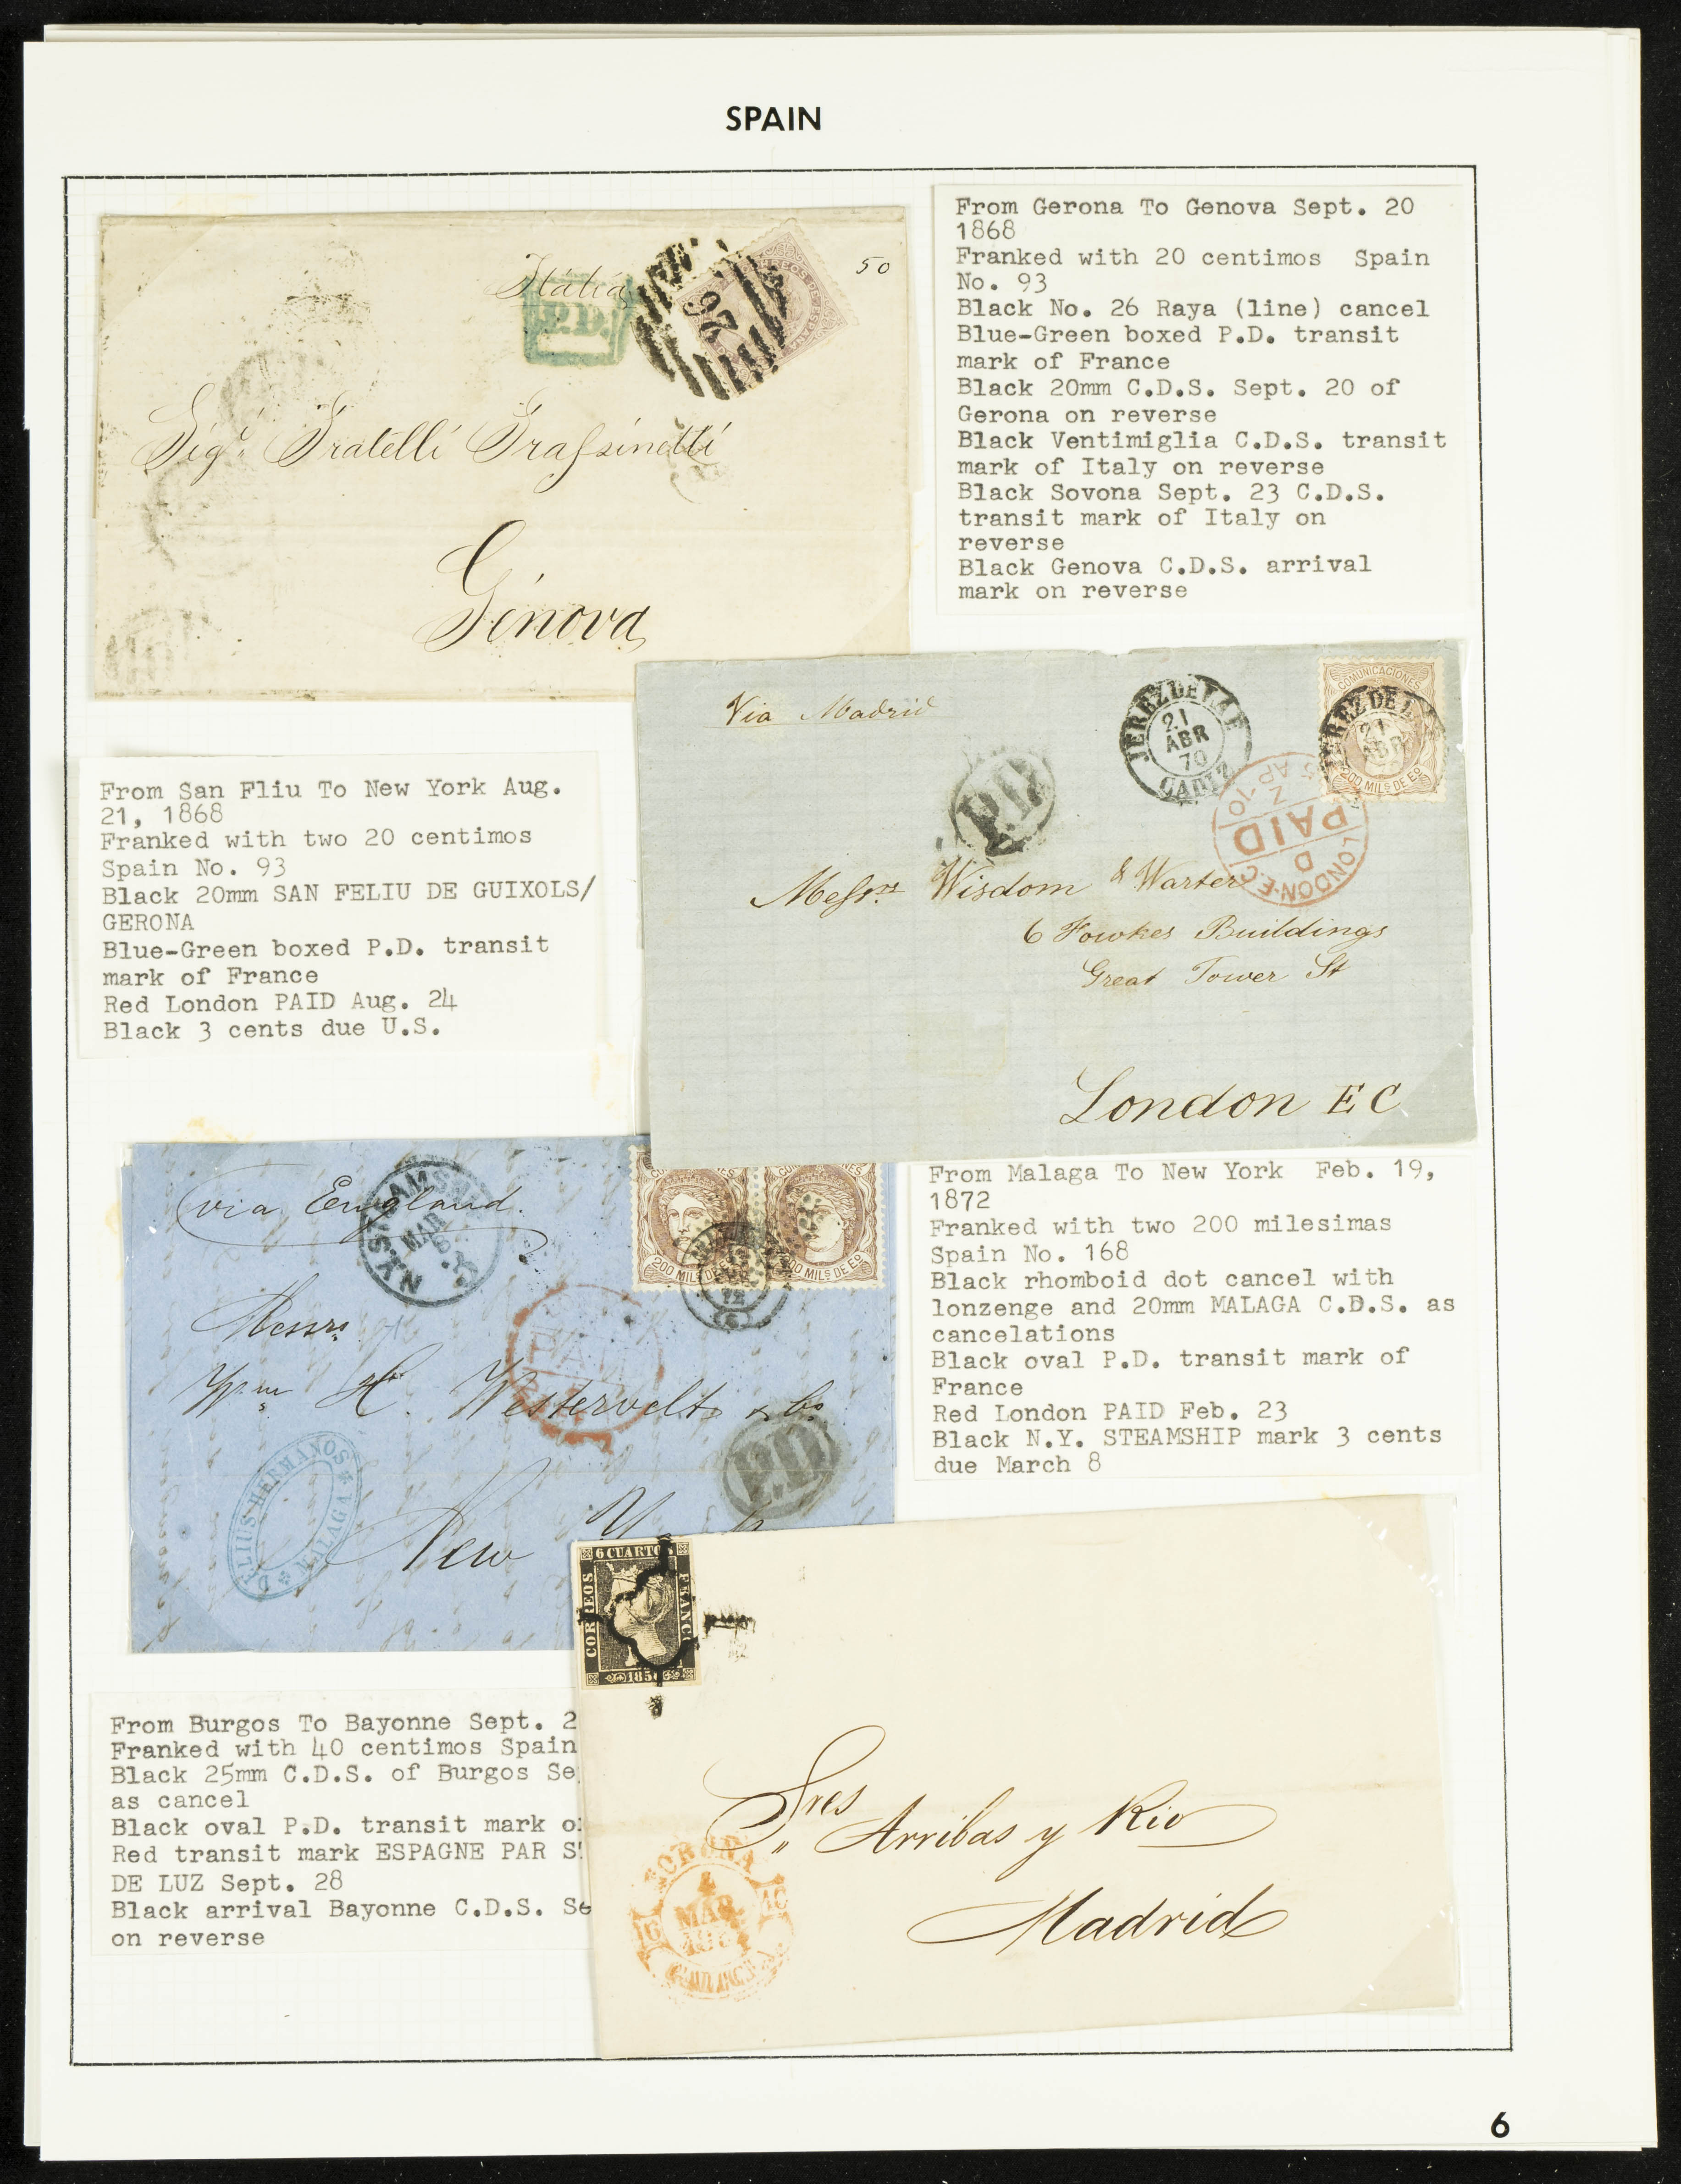 SPAIN
Italia
50
P.D.
26
Sigri Fratelli Frassinetti
Génova
From Gerona To Genova Sept. 20
1868
Franked with 20 centimos Spain
No. 93
Black No. 26 Raya (line) cancel
Blue-Green boxed P.D. transit
mark of France
Black 20mm C.D.S. Sept. 20 of
Gerona on reverse
Black Ventimiglia C.D.S. transit
mark of Italy on reverse
Black Sovona Sept. 23 C.D.S.
transit mark of Italy on
reverse
Black Genova C.D.S. arrival
mark on reverse
Via Madrid
JEREZ DE LA F
21
ABR
70
CADIZ
COMUNICACIONES
200 MILS DE EO
P.D.
LONDON-E.C
PAID
D
Messrs Wisdom & Warter
6 Fowkes Buildings
Great Tower St
London E C
From San Fliu To New York Aug.
21, 1868
Franked with two 20 centimos
Spain No. 93
Black 20mm SAN FELIU DE GUIXOLS/
GERONA
Blue-Green boxed P.D. transit
mark of France
Red London PAID Aug. 24
Black 3 cents due U.S.
via England.
N.Y. STEAMSH
MAR
200 MILS DE EO
Messrs
Wm H. Westervelt & Co
P.D.
DELIUS HERMANOS
MALAGA
New
From Malaga To New York Feb. 19,
1872
Franked with two 200 milesimas
Spain No. 168
Black rhomboid dot cancel with
lonzenge and 20mm MALAGA C.D.S. as
cancelations
Black oval P.D. transit mark of
France
Red London PAID Feb. 23
Black N.Y. STEAMSHIP mark 3 cents
due March 8
6 CUARTOS
CORREOS
FRANCO
185
From Burgos To Bayonne Sept. 2
Franked with 40 centimos Spain
Black 25mm C.D.S. of Burgos Se
as cancel
Black oval P.D. transit mark o
Red transit mark ESPAGNE PAR S
DE LUZ Sept. 28
Black arrival Bayonne C.D.S. Se
on reverse
Sres
Arribas y Rio
Madrid
CORUÑA
4
MAR
6